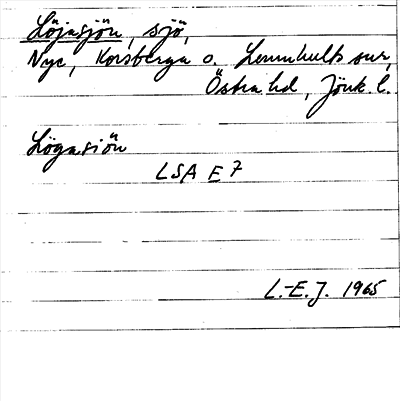 Löjasjön, sjö,
Nye, Korsberga o. Lemnhults snr,
Östra hd, Jönk. l.
Lögasiön
LSA E7
L.-E. J. 1965